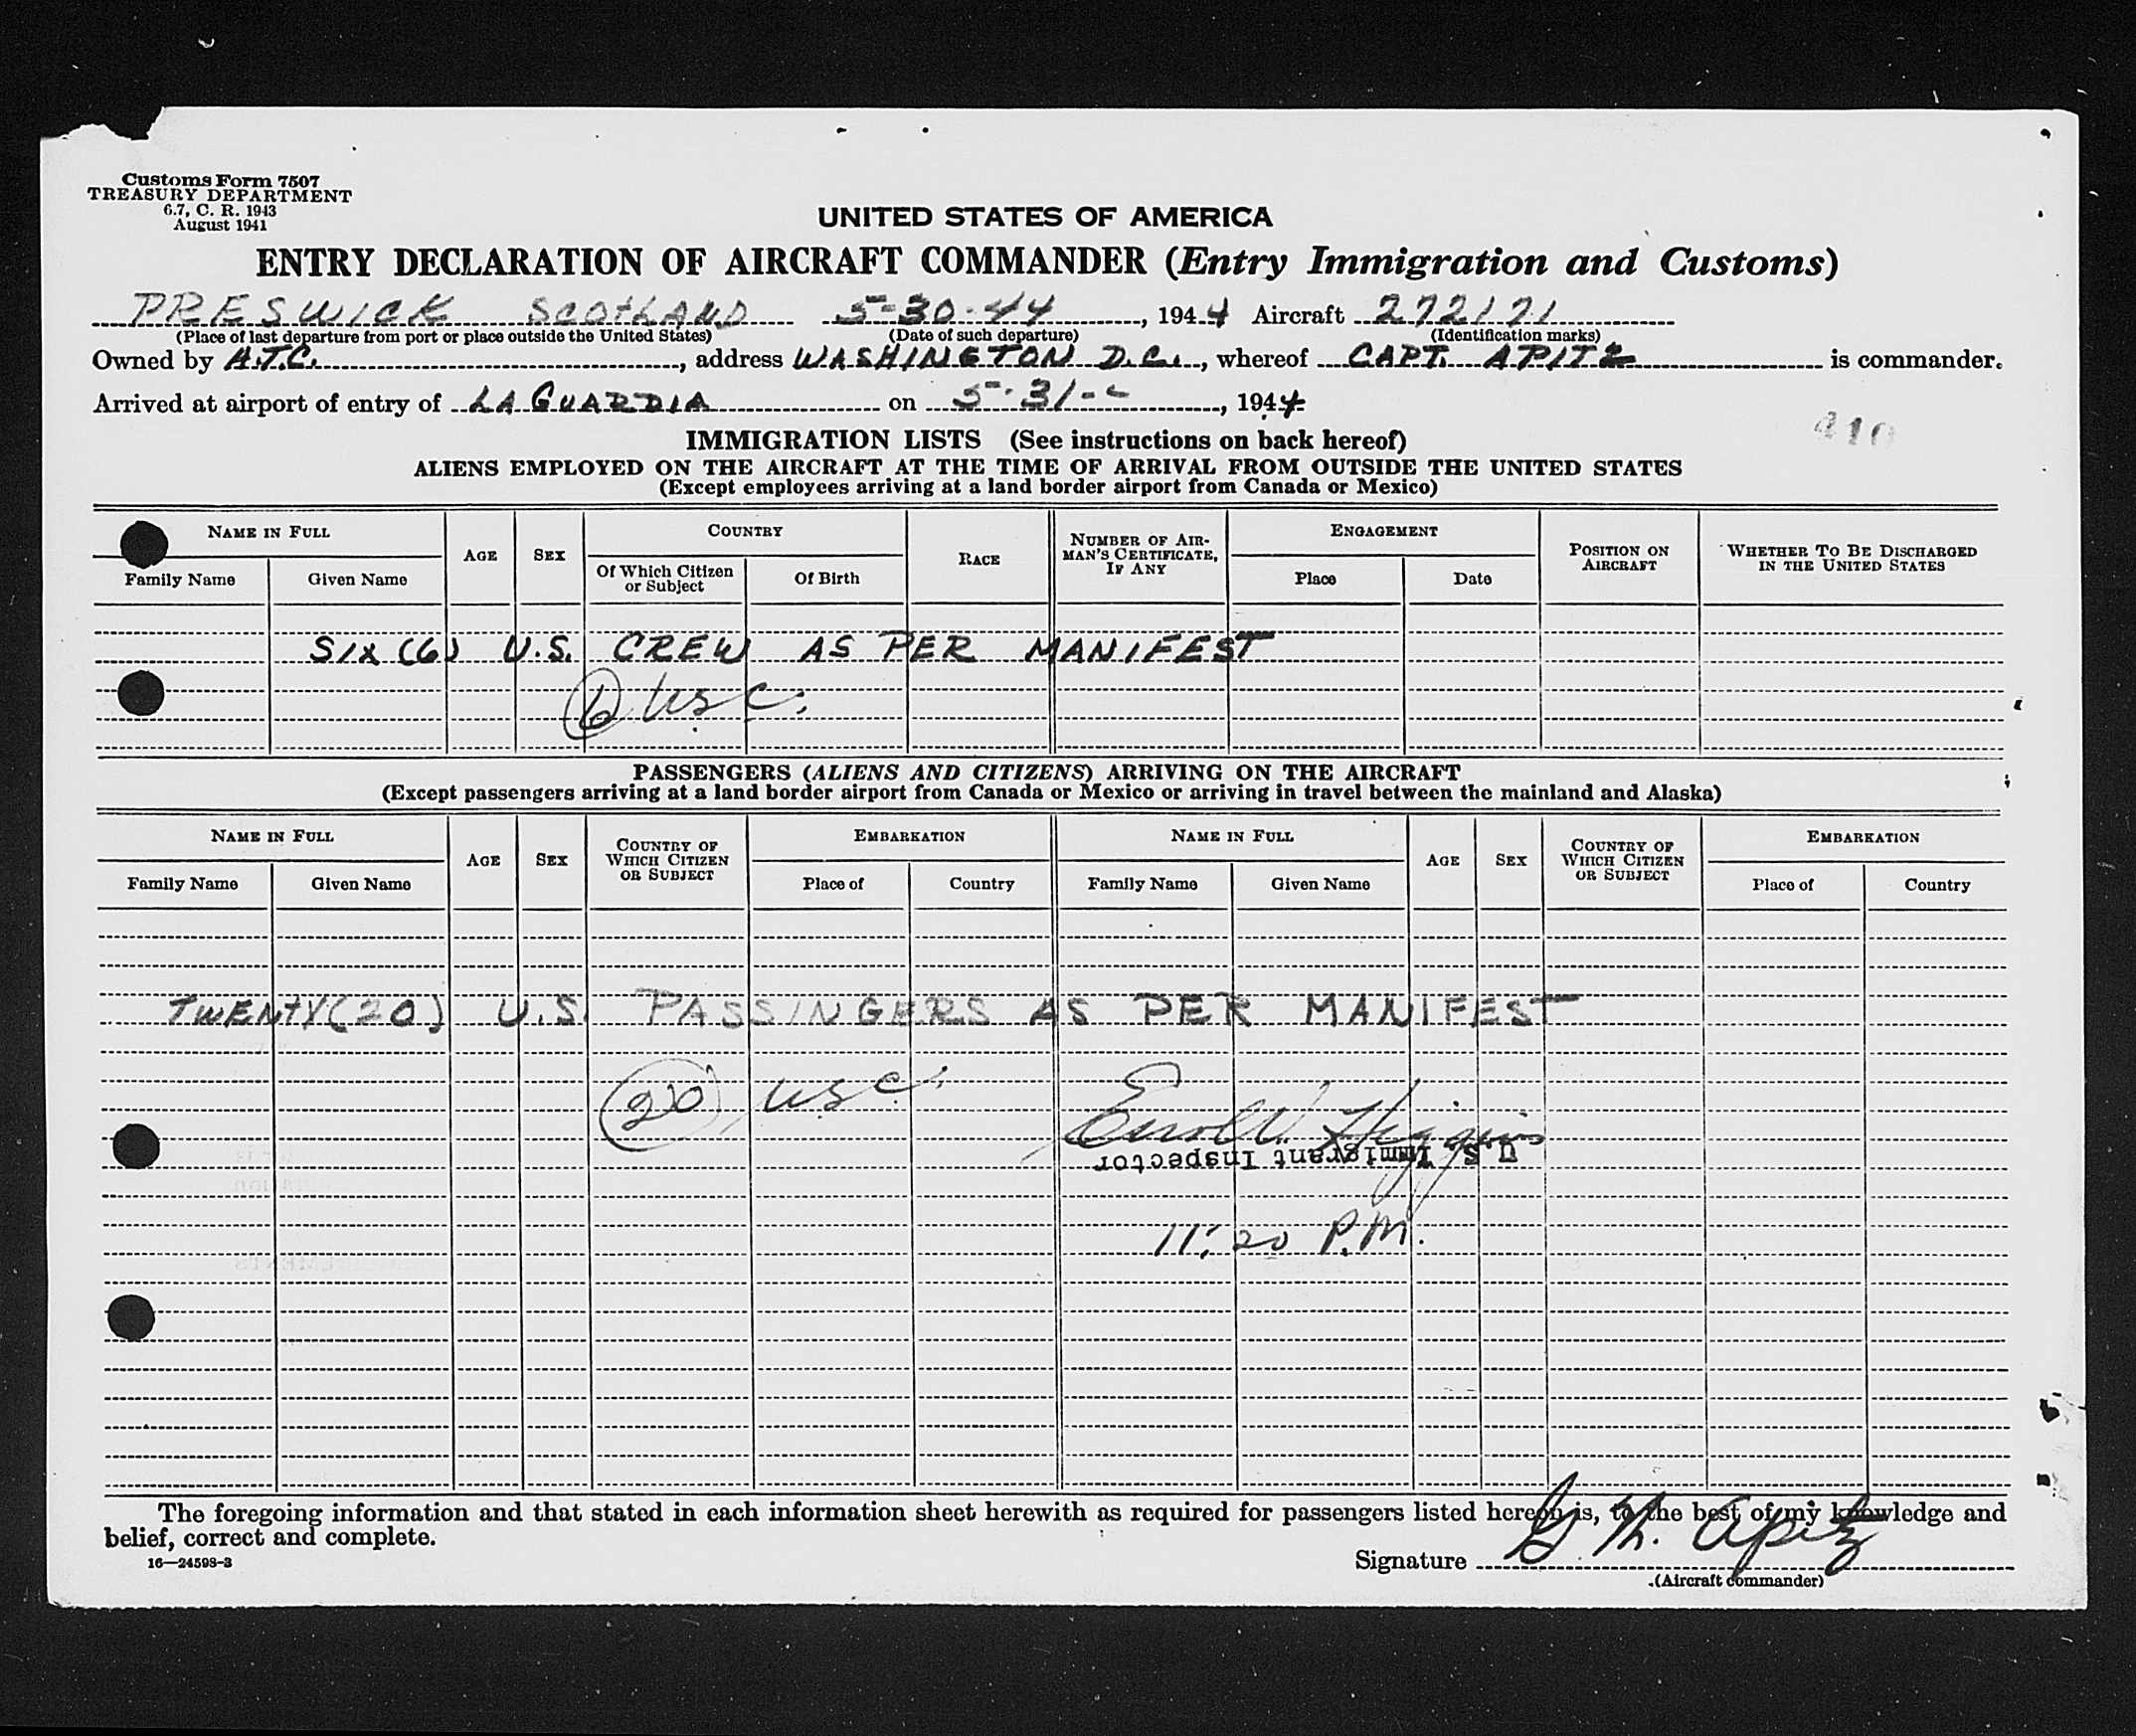 Customs Form 7507
TREASURY DEPARTMENT
6.7, C. R. 1943
August 1941
UNITED STATES OF AMERICA
ENTRY DECLARATION OF AIRCRAFT COMMANDER (Entry Immigration and Customs)
PRESWICK SCOTLAND 5-30-44, 1944 Aircraft 272171
(Place of last departure from port or place outside the United States) (Date of such departure) (Identification marks)
Owned by A.T.C., address WASHINGTON D.C., whereof CAPT. APITZ is commander.
Arrived at airport of entry of LA GUARDIA on 5-31-, 1944
410
IMMIGRATION LISTS (See instructions on back hereof)
ALIENS EMPLOYED ON THE AIRCRAFT AT THE TIME OF ARRIVAL FROM OUTSIDE THE UNITED STATES
(Except employees arriving at a land border airport from Canada or Mexico)
NAME IN FULL AGE SEX COUNTRY RACE NUMBER OF AIRMAN'S CERTIFICATE, IF ANY ENGAGEMENT POSITION ON AIRCRAFT WHETHER TO BE DISCHARGED IN THE UNITED STATES
Family Name Given Name Of Which Citizen or Subject Of Birth Place Date
SIX (6) U.S. CREW AS PER MANIFEST
6 USC.
PASSENGERS (ALIENS AND CITIZENS) ARRIVING ON THE AIRCRAFT
(Except passengers arriving at a land border airport from Canada or Mexico or arriving in travel between the mainland and Alaska)
NAME IN FULL AGE SEX COUNTRY OF WHICH CITIZEN OR SUBJECT EMBARKATION NAME IN FULL AGE SEX COUNTRY OF WHICH CITIZEN OR SUBJECT EMBARKATION
Family Name Given Name Place of Country Family Name Given Name Place of Country
TWENTY (20) U.S. PASSINGERS AS PER MANIFEST
20 USC.
Errol W. Higgins
U.S. Immigrant Inspector
11:20 P.M.
The foregoing information and that stated in each information sheet herewith as required for passengers listed hereon is, to the best of my knowledge and
belief, correct and complete.
16—24598-3
Signature G. M. Apitz
(Aircraft commander)